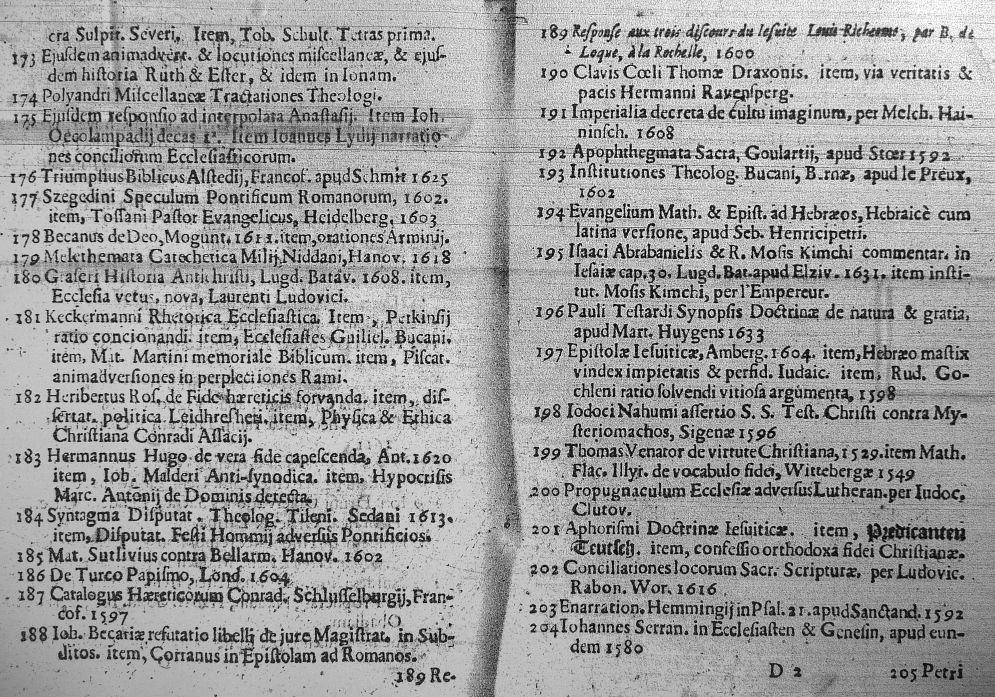 cra Sulpit. Severi, Item, Tob. Schult. Tetras prima.
173 Ejuſdem animadvert. & locutiones miſcellaneæ, & ejuſ-
dem hiſtoria Ruth & Eſter, & idem in Ionam.
174 Polyandri Miſcellaneæ Tractationes Theologi.
175 Ejuſdem reſponſio ad interpolata Anaſtaſij. Item Ioh.
Oecolampadij decas 1ª. Item Ioannes Lydij narratio-
nes conciliorum Eccleſiaſticorum.
176 Triumphus Biblicus Alſtedij, Francof. apud Schmit 1625
177 Szegedini Speculum Pontificum Romanorum, 1602.
item, Toſſani Paſtor Evangelicus, Heidelberg. 1603
178 Becanus de Deo, Mogunt. 1611. item, orationes Arminij.
179 Melethemata Catechetica Milij, Niddani, Hanov. 1618
180 Graſeri Hiſtoria Antichriſti, Lugd. Batav. 1608. item,
Eccleſia vetus, nova, Laurenti Ludovici.
181 Keckermanni Rhetorica Eccleſiaſtica. Item, Perkinſij
ratio concionandi. item, Eccleſiaſtes Guiliel. Bucani.
item, Mat. Martini memoriale Biblicum. item, Piſcat.
animadverſiones in perplectiones Rami.
182 Heribertus Roſ. de Fide hæreticis ſervanda. item, diſ-
ſertat. politica Leidhreſheri. item, Phyſica & Ethica
Chriſtiana Conradi Aſlacij.
183 Hermannus Hugo de vera fide capeſcenda, Ant. 1620
item, Ioh. Malderi Anti-ſynodica. item, Hypocriſis
Marc. Antonij de Dominis detecta.
184 Syntagma Diſputat. Theolog. Tileni. Sedani 1613.
item, Diſputat. Feſti Hommij adverſus Pontificios.
185 Mat. Sutlivius contra Bellarm. Hanov. 1602
186 De Turco Papiſmo, Lond. 1604
187 Catalogus Hæreticorum Conrad. Schluſſelburgij, Fran-
cof. 1597
188 Ioh. Becariæ refutatio libelli de jure Magiſtrat. in Sub-
ditos. item, Corranus in Epiſtolam ad Romanos.
189 Re-
189 Reſponſe aux trois diſcours du Ieſuite Louis Richeome, par B. de
Loque, à la Rochelle, 1600
190 Clavis Cœli Thomæ Draxonis. item, via veritatis &
pacis Hermanni Ravenſperg.
191 Imperialia decreta de cultu imaginum, per Melch. Hai-
ninſch. 1608
192 Apophthegmata Sacra, Goulartij, apud Stoer 1592
193 Inſtitutiones Theolog. Bucani, Bernæ, apud le Preux,
1602
194 Evangelium Math. & Epiſt. ad Hebræos, Hebraicè cum
latina verſione, apud Seb. Henricipetri.
195 Iſaaci Abrabanielis & R. Moſis Kimchi commentar. in
Ieſaiæ cap. 30. Lugd. Bat. apud Elziv. 1631. item inſti-
tut. Moſis Kimchi, per l'Empereur.
196 Pauli Teſtardi Synopſis Doctrinæ de natura & gratia,
apud Mart. Huygens 1633
197 Epiſtolæ Ieſuiticæ, Amberg. 1604. item, Hebræo maſtix
vindex impietatis & perfid. Iudaic. item, Rud. Go-
chleni ratio ſolvendi vitioſa argumenta, 1598
198 Iodoci Nahumi aſſertio S. S. Teſt. Chriſti contra My-
ſteriomachos, Sigenæ 1596
199 Thomas Venator de virtute Chriſtiana, 1529. item Math.
Flac. Illyr. de vocabulo fidei, Wittebergæ 1549
200 Propugnaculum Eccleſiæ adverſus Lutheran. per Iudoc.
Clutov.
201 Aphoriſmi Doctrinæ Ieſuiticæ. item, Predicanten
Teutſch. item, confeſſio orthodoxa fidei Chriſtianæ.
202 Conciliationes locorum Sacr. Scripturæ, per Ludovic.
Rabon. Wor. 1616
203 Enarration. Hemmingij in Pſal. 21. apud Sanctand. 1592
204 Iohannes Serran. in Eccleſiaſten & Geneſin, apud eun-
dem 1580
D 2
205 Petri